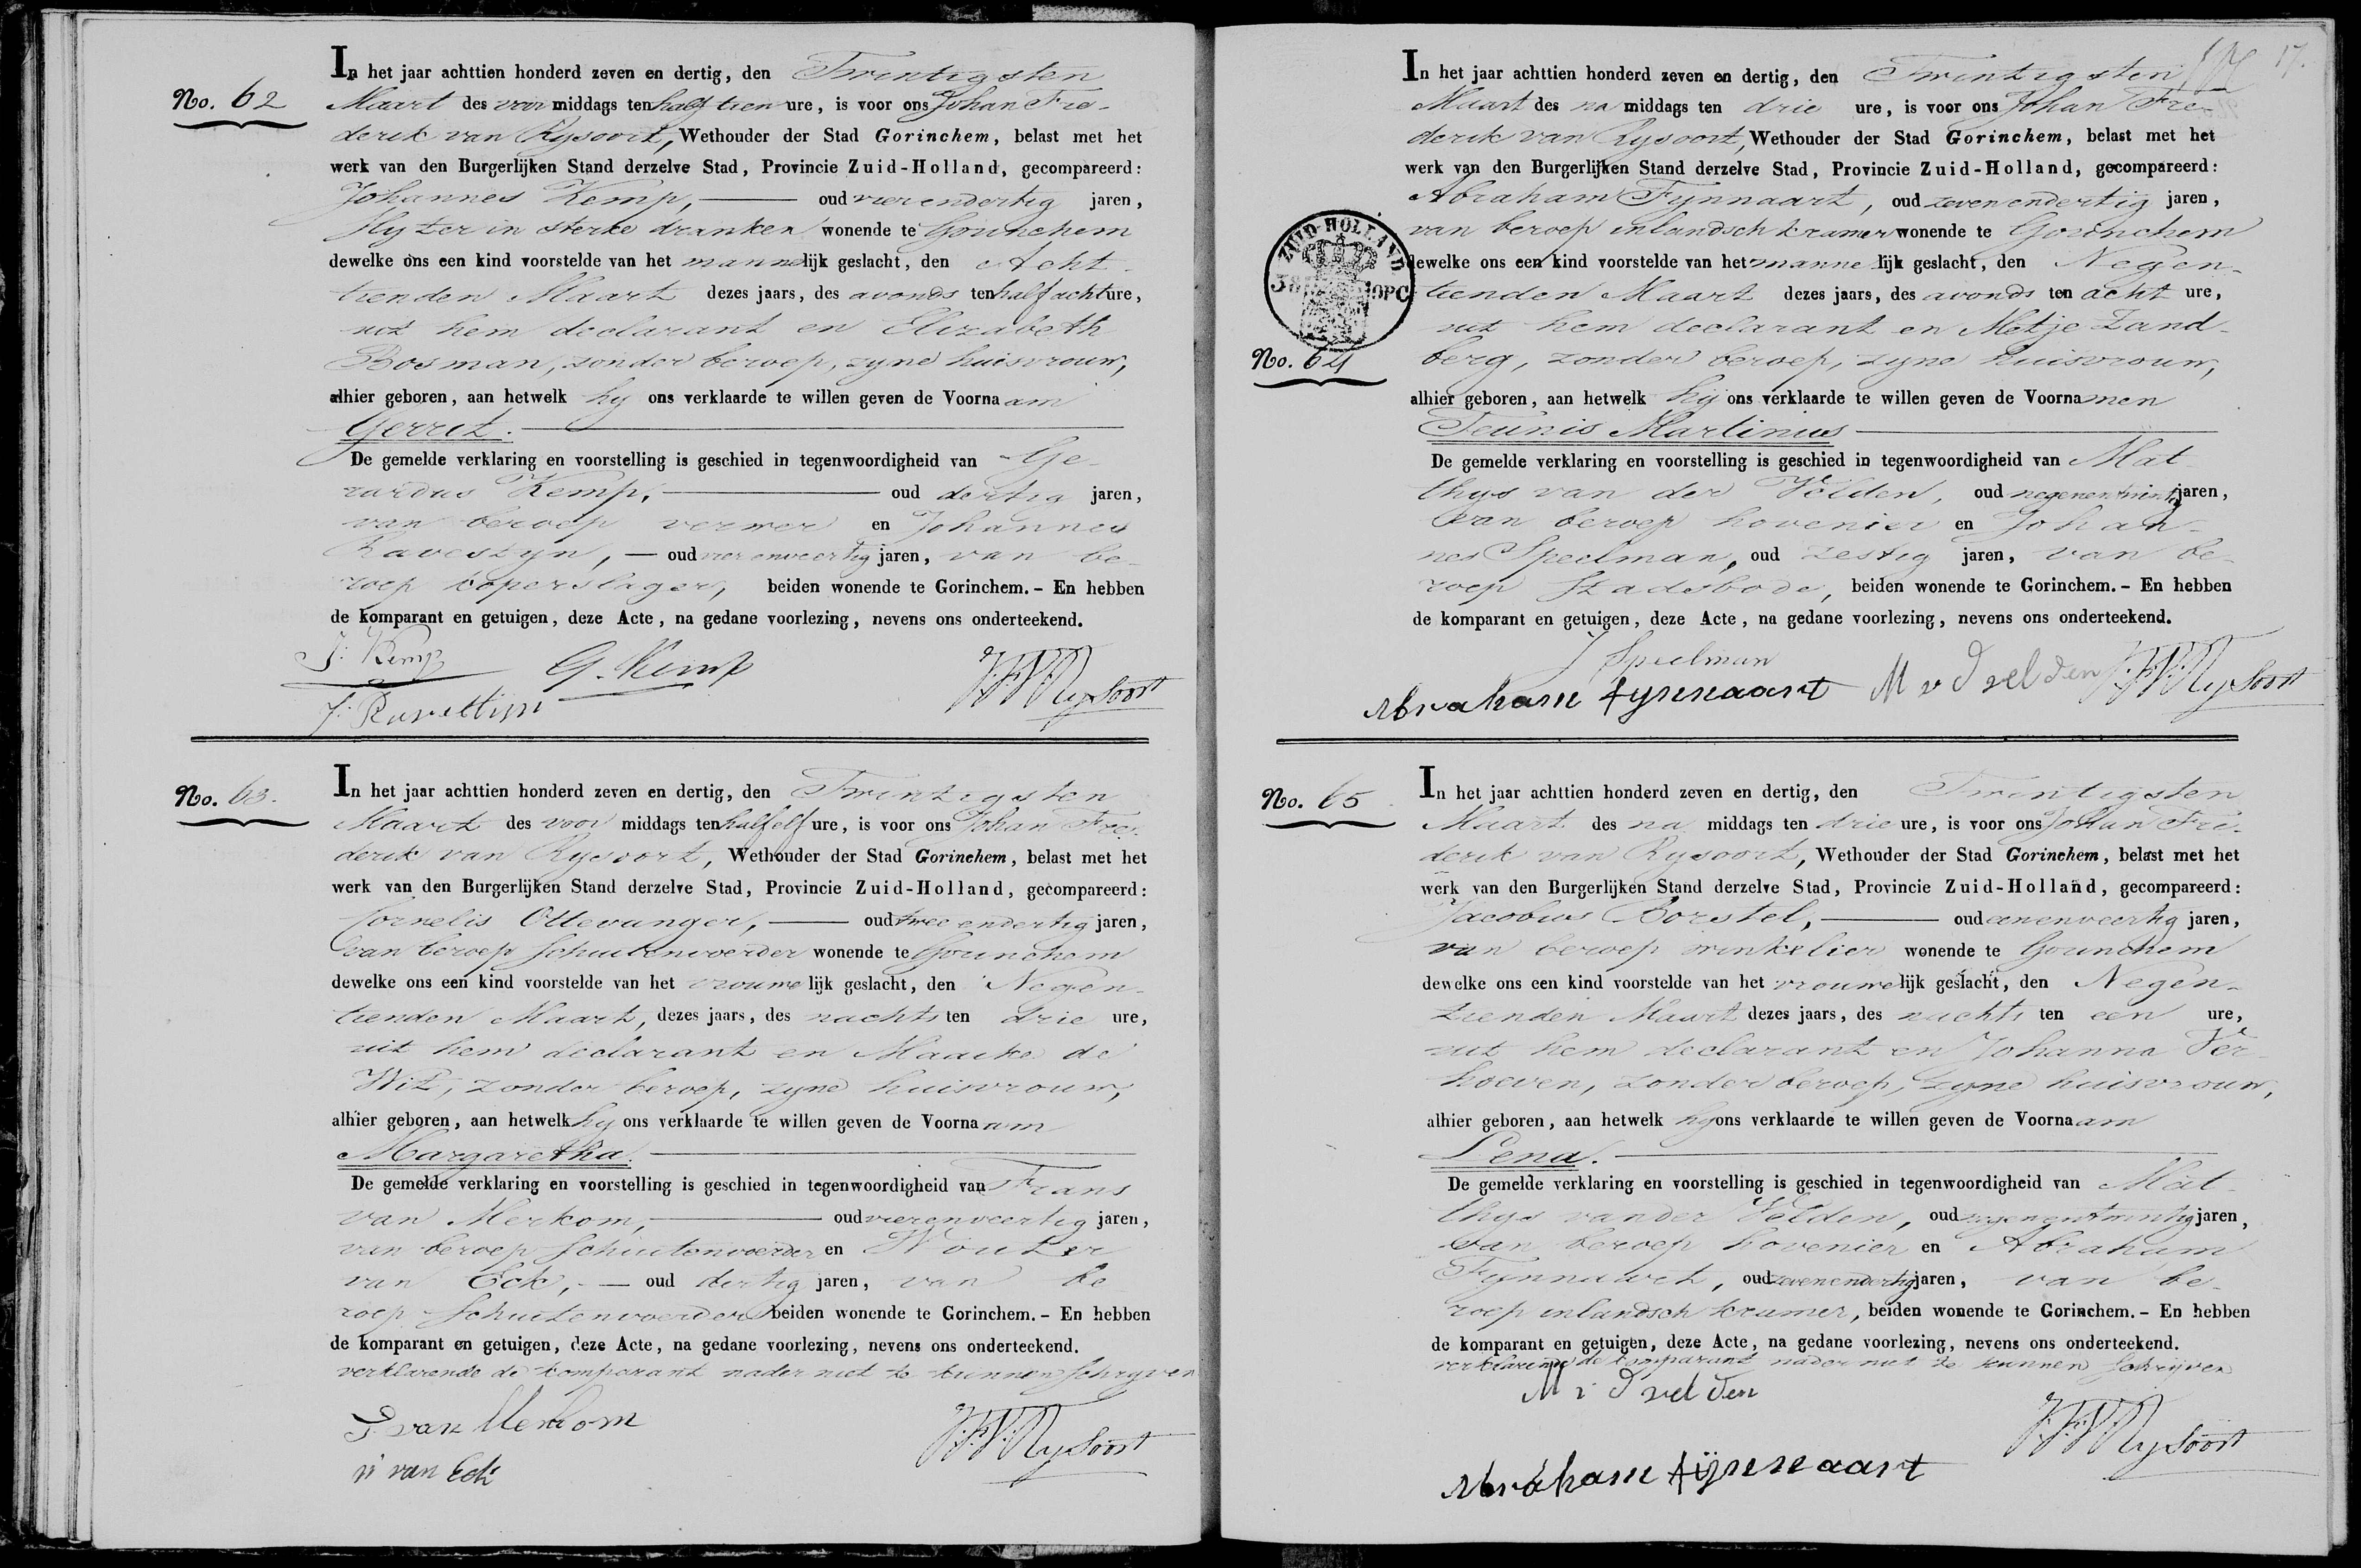 No. 62
In het jaar achttien honderd zeven en dertig, den Twintigsten
Maart des voor middags ten half tien ure, is voor ons Johan Fre-
derik van Rysoort, Wethouder der Stad Gorinchem, belast met het
werk van den Burgerlijken Stand derzelve Stad, Provincie Zuid-Holland, gecompareerd:
Johannes Kemp, oud vierendertig jaren,
slyter in sterke dranken wonende te Gorinchem
dewelke ons een kind voorstelde van het mannelijk geslacht, den Acht-
tienden Maart dezes jaars, des avonds ten half acht ure,
uit hem declarant en Elizabeth
Bosman, zonder beroep, zyne huisvrouw,
alhier geboren, aan hetwelk hy ons verklaarde te willen geven de Voornaam
Gerrit.
De gemelde verklaring en voorstelling is geschied in tegenwoordigheid van Ge-
rardus Kemp, oud dertig jaren,
van beroep verwer en Johannes
Ravestyn, oud vierenveertig jaren, van be-
roep koperslager, beiden wonende te Gorinchem. - En hebben
de komparant en getuigen, deze Acte, na gedane voorlezing, nevens ons onderteekend.
J: Kemp G. Kemp
J: Ravestijn J:F:V:Rysoort
No. 63.
In het jaar achttien honderd zeven en dertig, den Twintigsten
Maart des voor middags ten half elf ure, is voor ons Johan Fre-
derik van Rysoort, Wethouder der Stad Gorinchem, belast met het
werk van den Burgerlijken Stand derzelve Stad, Provincie Zuid-Holland, gecompareerd:
Cornelis Ottevanger, oud tweeendertig jaren,
van beroep schuitenvoerder wonende te Gorinchem
dewelke ons een kind voorstelde van het vrouwelijk geslacht, den Negen-
tienden Maart, dezes jaars, des nachts ten drie ure,
uit hem declarant en Maaike de
Wit, zonder beroep, zyne huisvrouw,
alhier geboren, aan hetwelk hy ons verklaarde te willen geven de Voornaam
Margaretha.
De gemelde verklaring en voorstelling is geschied in tegenwoordigheid van Frans
van Merkom, oud vierenveertig jaren,
van beroep schuitenvoerder en Wouter
van Eck, oud dertig jaren, van be
roep schuitenvoerder beiden wonende te Gorinchem. - En hebben
de komparant en getuigen, deze Acte, na gedane voorlezing, nevens ons onderteekend.
verklarende de komparant nader niet te kunnen schryven
F. van Merkom
W van Eck J:F:V:Rysoort
17.
In het jaar achttien honderd zeven en dertig, den Twintigsten
Maart des na middags ten drie ure, is voor ons Johan Fre-
derik van Rysoort, Wethouder der Stad Gorinchem, belast met het
werk van den Burgerlijken Stand derzelve Stad, Provincie Zuid-Holland, gecompareerd:
Abraham Fynnaart, oud zevenendertig jaren,
van beroep inlandsch kramer wonende te Gorinchem
dewelke ons een kind voorstelde van het mannelijk geslacht, den Negen-
tienden Maart dezes jaars, des avonds ten acht ure,
uit hem declarant en Metje Zand-
ZUID-HOLLAND
38 OPC
No. 64
berg, zonder beroep, zyne huisvrouw,
alhier geboren, aan hetwelk hij ons verklaarde te willen geven de Voornamen
Teunis Martinus
De gemelde verklaring en voorstelling is geschied in tegenwoordigheid van Mat-
thys van der Velden, oud negenentwintig jaren,
van beroep hovenier en Johan-
nes Speelman, oud zestig jaren, van be-
roep stadsbode, beiden wonende te Gorinchem. - En hebben
de komparant en getuigen, deze Acte, na gedane voorlezing, nevens ons onderteekend.
J Speelman
Abraham Fynnaart M v d velden J:F:V:Rysoort
No. 65
In het jaar achttien honderd zeven en dertig, den Twintigsten
Maart des na middags ten drie ure, is voor ons Johan Fre-
derik van Rysoort, Wethouder der Stad Gorinchem, belast met het
werk van den Burgerlijken Stand derzelve Stad, Provincie Zuid-Holland, gecompareerd:
Jacobus Borstel, oud eenenveertig jaren,
van beroep winkelier wonende te Gorinchem
dewelke ons een kind voorstelde van het vrouwelijk geslacht, den Negen-
tienden Maart dezes jaars, des nachts ten een ure,
uit hem declarant en Johanna Ver-
hoeven, zonder beroep, zyne huisvrouw,
alhier geboren, aan hetwelk hy ons verklaarde te willen geven de Voornaam
Lena.
De gemelde verklaring en voorstelling is geschied in tegenwoordigheid van Mat-
thys van der Velden, oud negenentwintig jaren,
van beroep hovenier en Abraham
Fynnaart, oud zevenendertig jaren, van be-
roep inlandsch kramer, beiden wonende te Gorinchem. - En hebben
de komparant en getuigen, deze Acte, na gedane voorlezing, nevens ons onderteekend.
verklarende de komparant nader niet te kunnen schrijven
M v d velden
J:F:V:Rysoort
Abraham Fijnnaart